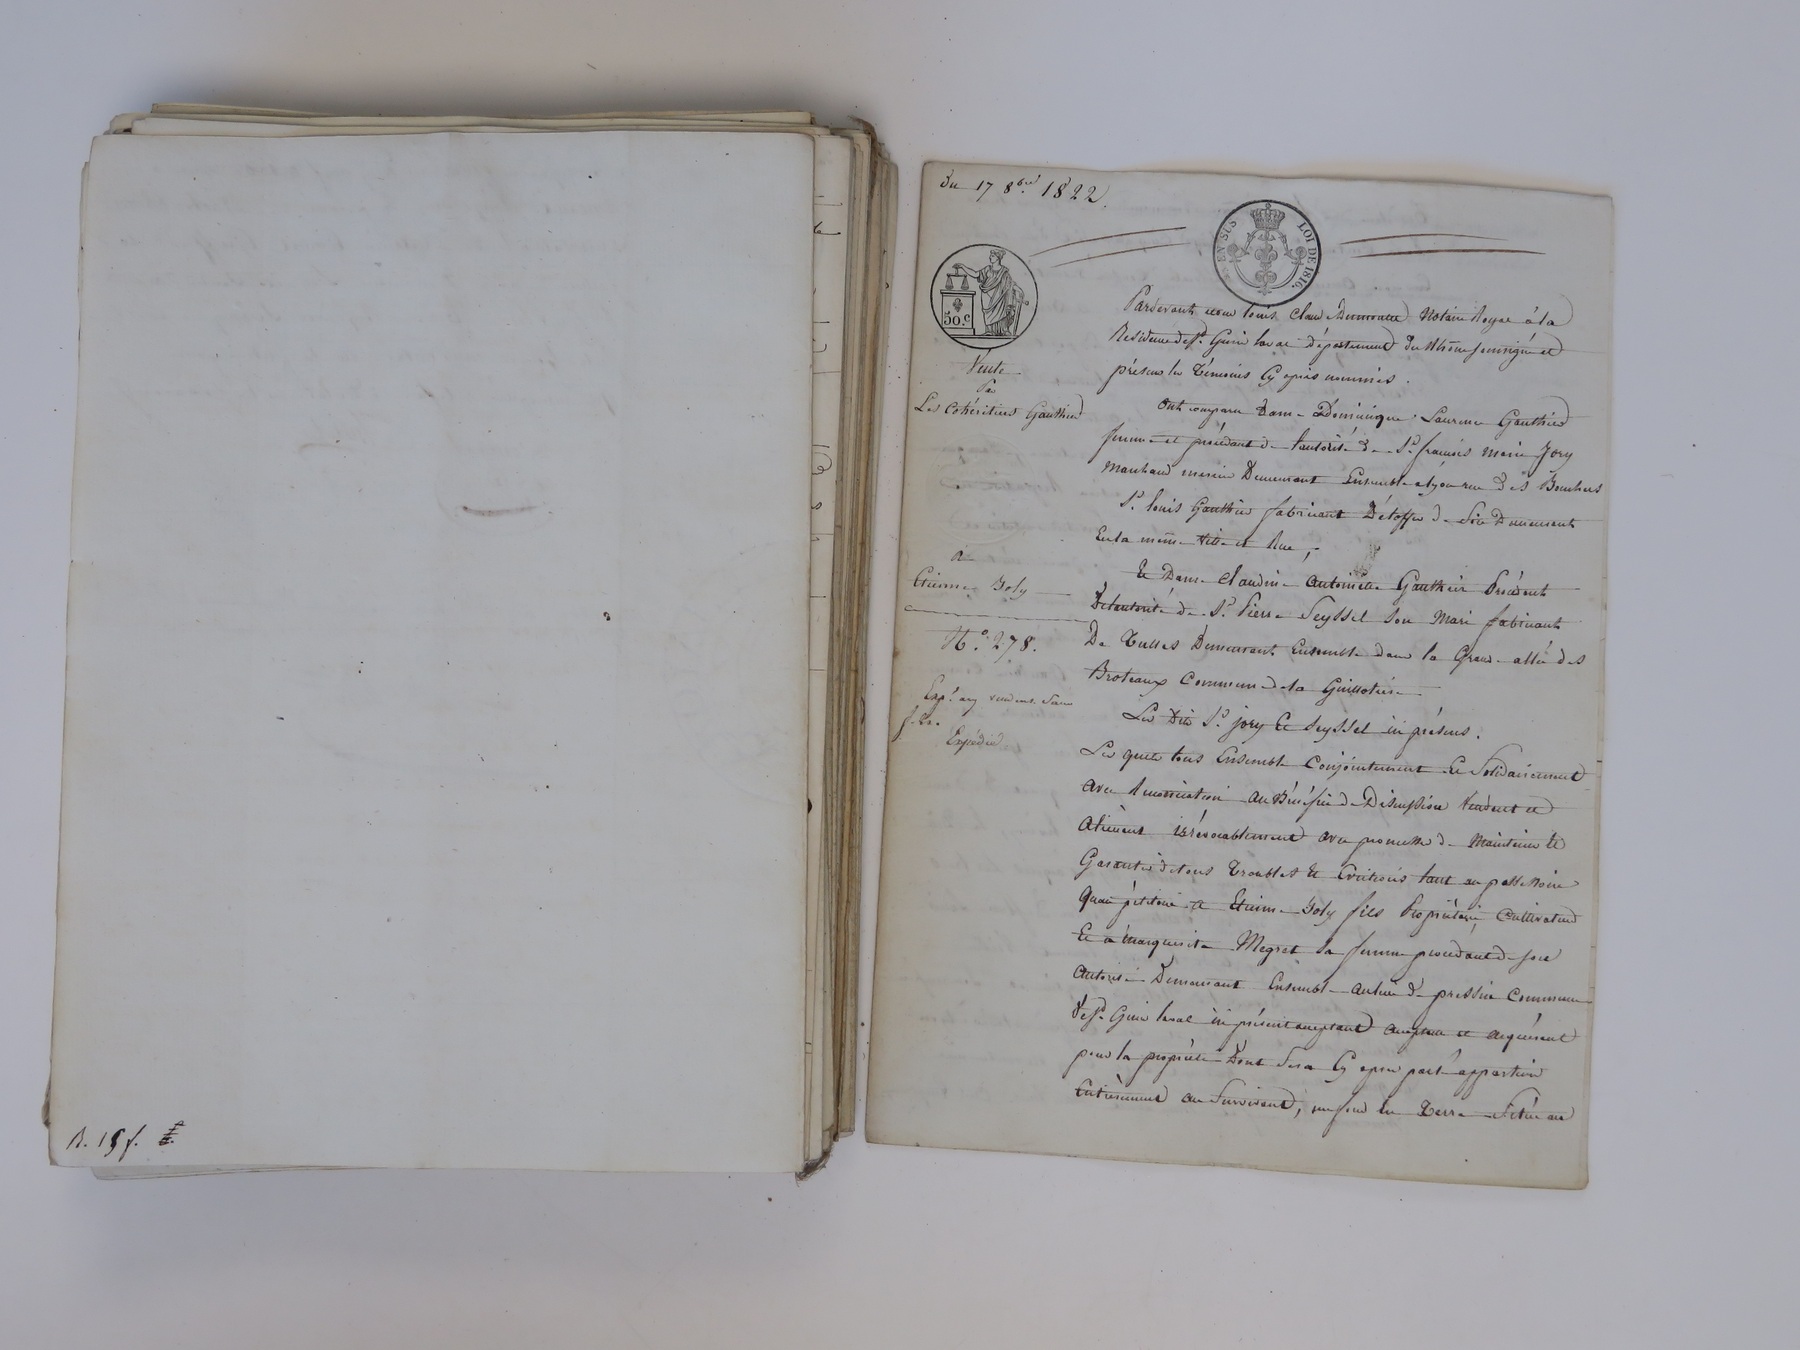 R. 15 f.
du 17 8bre 1822.
EN SUS LOI DE 1816.
50.c
Vente
Par
Les Cohéritiers Gauthier
A
Etienne Joly
N.o 278.
Expédié
Pardevant nous louis Claude notaire Royal à la
Résidence de St. Genis laval département du Rhône soussigné et
présens les témoins Cy après nommés.
Ont comparu Dame Dominique Laurence Gauthier
femme et procédant de l'autorité de Sr. françois marie Jory
marchand mercier Demeurant Ensemble a lyon rue des Bouchers
Sr. louis Gauthier fabricant D'étoffes de Soie Demeurant
En la même ville et Rue,
Et Dame Claudine Antoinette Gauthier Procédant
De l'autorité de Sr. Pierre Seyssel Son Mari fabricant
De Tulles Demeurant Ensemble dans la Grande allée des
Broteaux Commune de la Guillotière
Les dits Sr. jory Et Seyssel ici présens.
Les quels tous Ensemble Conjointement Et Solidairement
avec Renonciation au Bénéfice de Discussion Vendent et
aliènent irrévocablement avec promesse de Maintenir Et
Garantir de tous Troubles Et Evictions tant au possessoire
qu'au pétitoire a Etienne Joly fils Propriétaire Cultivateur
Et a marguerite Megret Sa femme procédant de son
autorité Demeurant Ensemble au lieu de pressin Commune
de St. Genis laval ici présent acceptant et acquérant
pour la propriété Dont Sera Cy après parlé appartenir
Entièrement au Survivant, un fond en Terre Située au